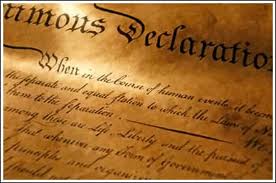 nimous Declaratio
When in the Course of human events, it becom
the separate and equal station to which the Laws of N
them to the separation.
among these are Life, Liberty and the pursuit of
That whenever any Form of Government
principles and organiz